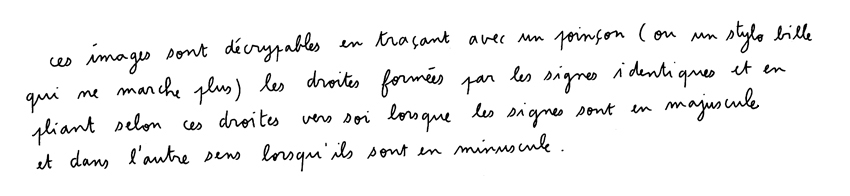 ces images sont décryptables en traçant avec un poinçon (ou un stylo bille
qui ne marche plus) les droites formées par les signes identiques et en
pliant selon ces droites vers soi lorsque les signes sont en majuscule
et dans l'autre sens lorsqu'ils sont en minuscule.